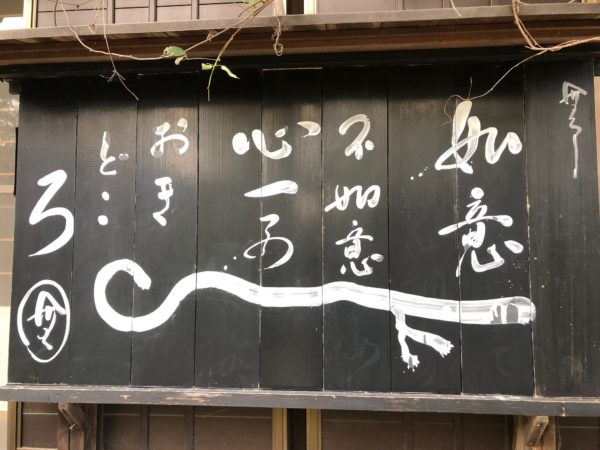 如意
不如意
心一つの
おき
どこ
ろ